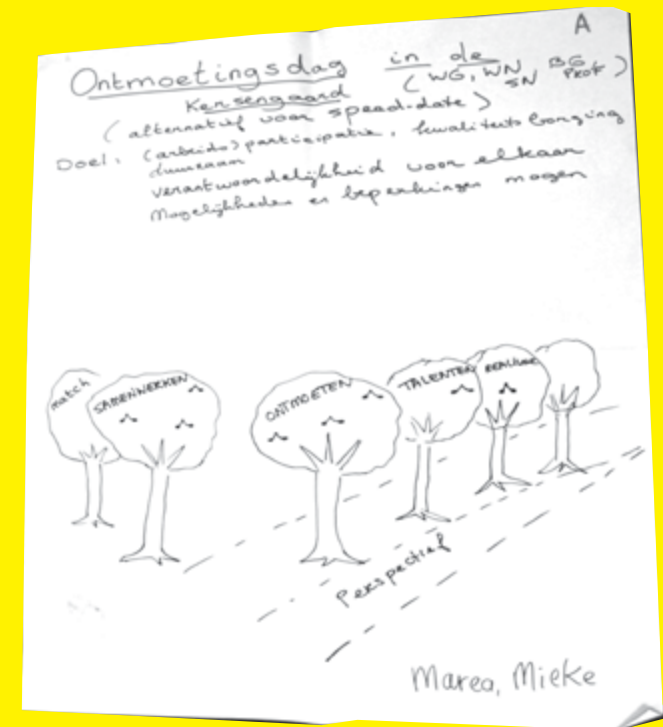 A
Ontmoetingsdag in de
Kersengaard (WG, WN, SN, BG PROF)
(alternatief voor speed-date)
Doel: (arbeids)participatie, kwaliteitsborging
duurzaam
verantwoordelijkheid voor elkaar
Mogelijkheden en beperkingen mogen
match
SAMENWERKEN
ONTMOETEN
TALENTEN
Perspectief
Marea, Mieke